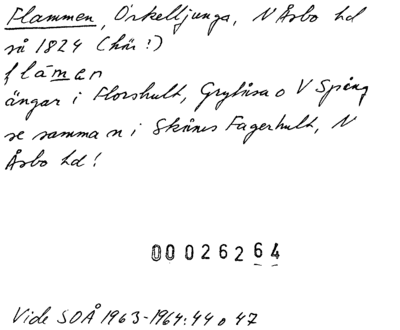 Flammen, Örkelljunga, N Åsbo hd
så 1824 (här!)
flámen
ängar i Florshult, Grytåsa o V Spång
se samma n i Skånes Fagerhult, N
Åsbo hd!
00026264
Vide SOÅ 1963-1964:44 o 47